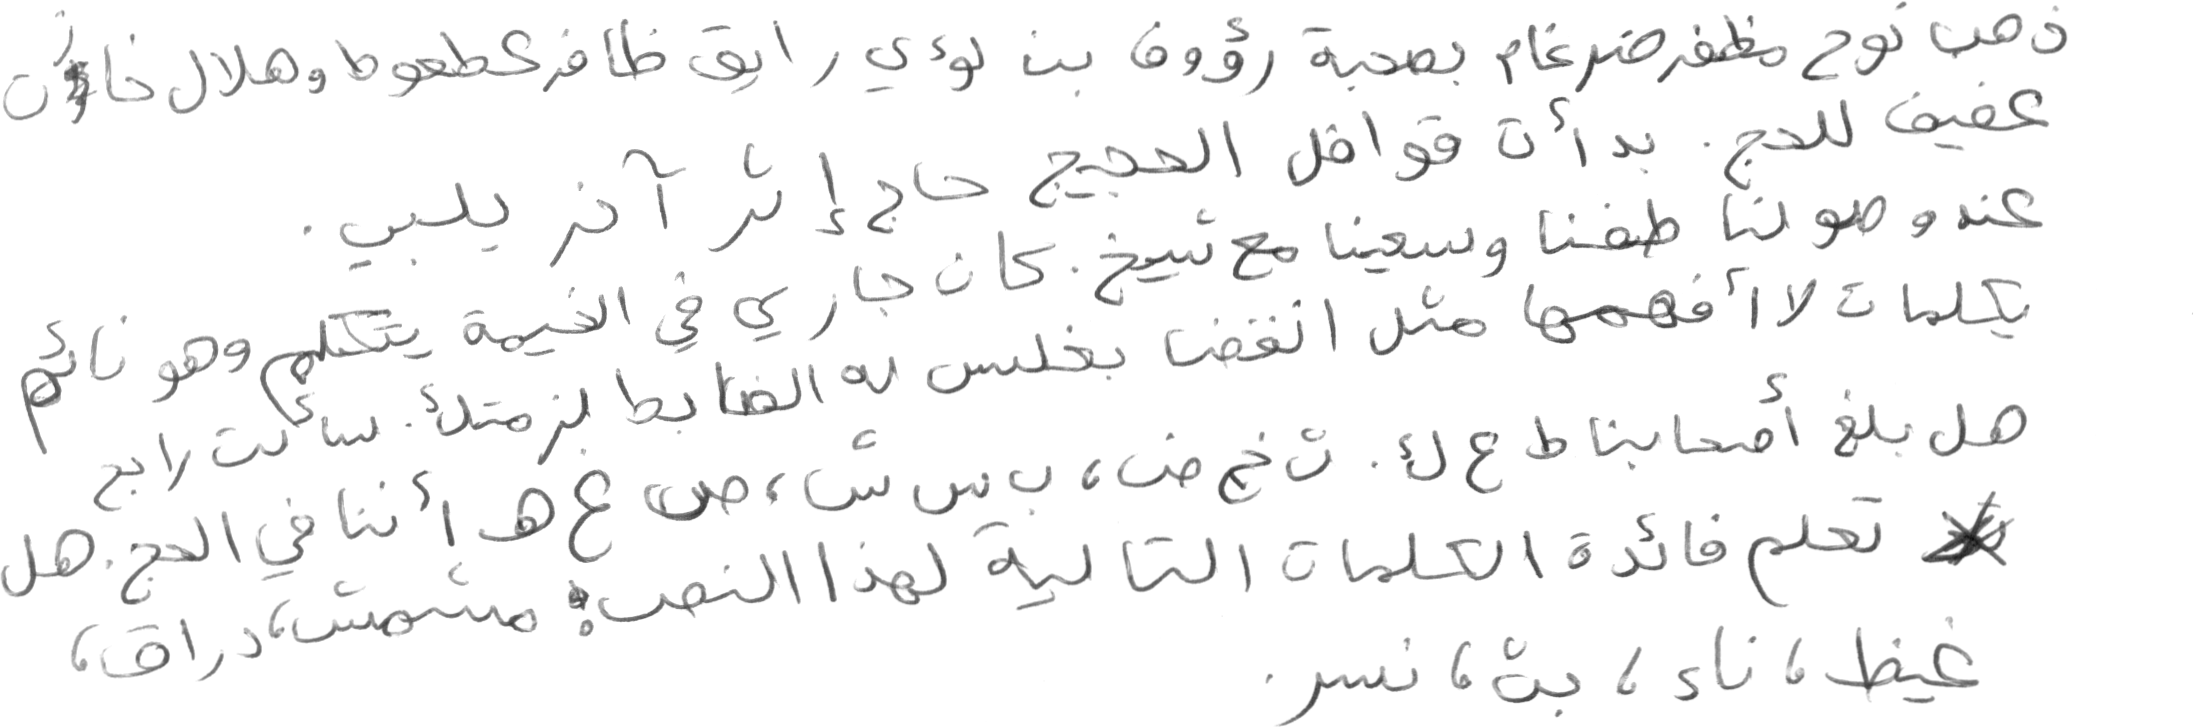 ذهب نوح مظفر ضرغام بصحبة رؤوف بن لؤي رايق ظافر عطعوط وهلال خازن
عفيف للحج. بدأت قوافل الحجيج حاج إثر آخر يلبي.
عند وصولنا طفنا وسعينا مع شيخ. كان جاري في الخيمة يتكلم وهو نائم
بكلمات لا أفهمها مثل انفضا بغلس له الضابط بزمتك. سألت رابح
هل بلغ أصحابنا ط ع ك. ث خ ض، ب س ش، ص غ هـ أننا في الحج. هل
تعلم فائدة الكلمات التالية لهذا النص: مشمش، دراق،
غيظ، ناء، بت، نسر.